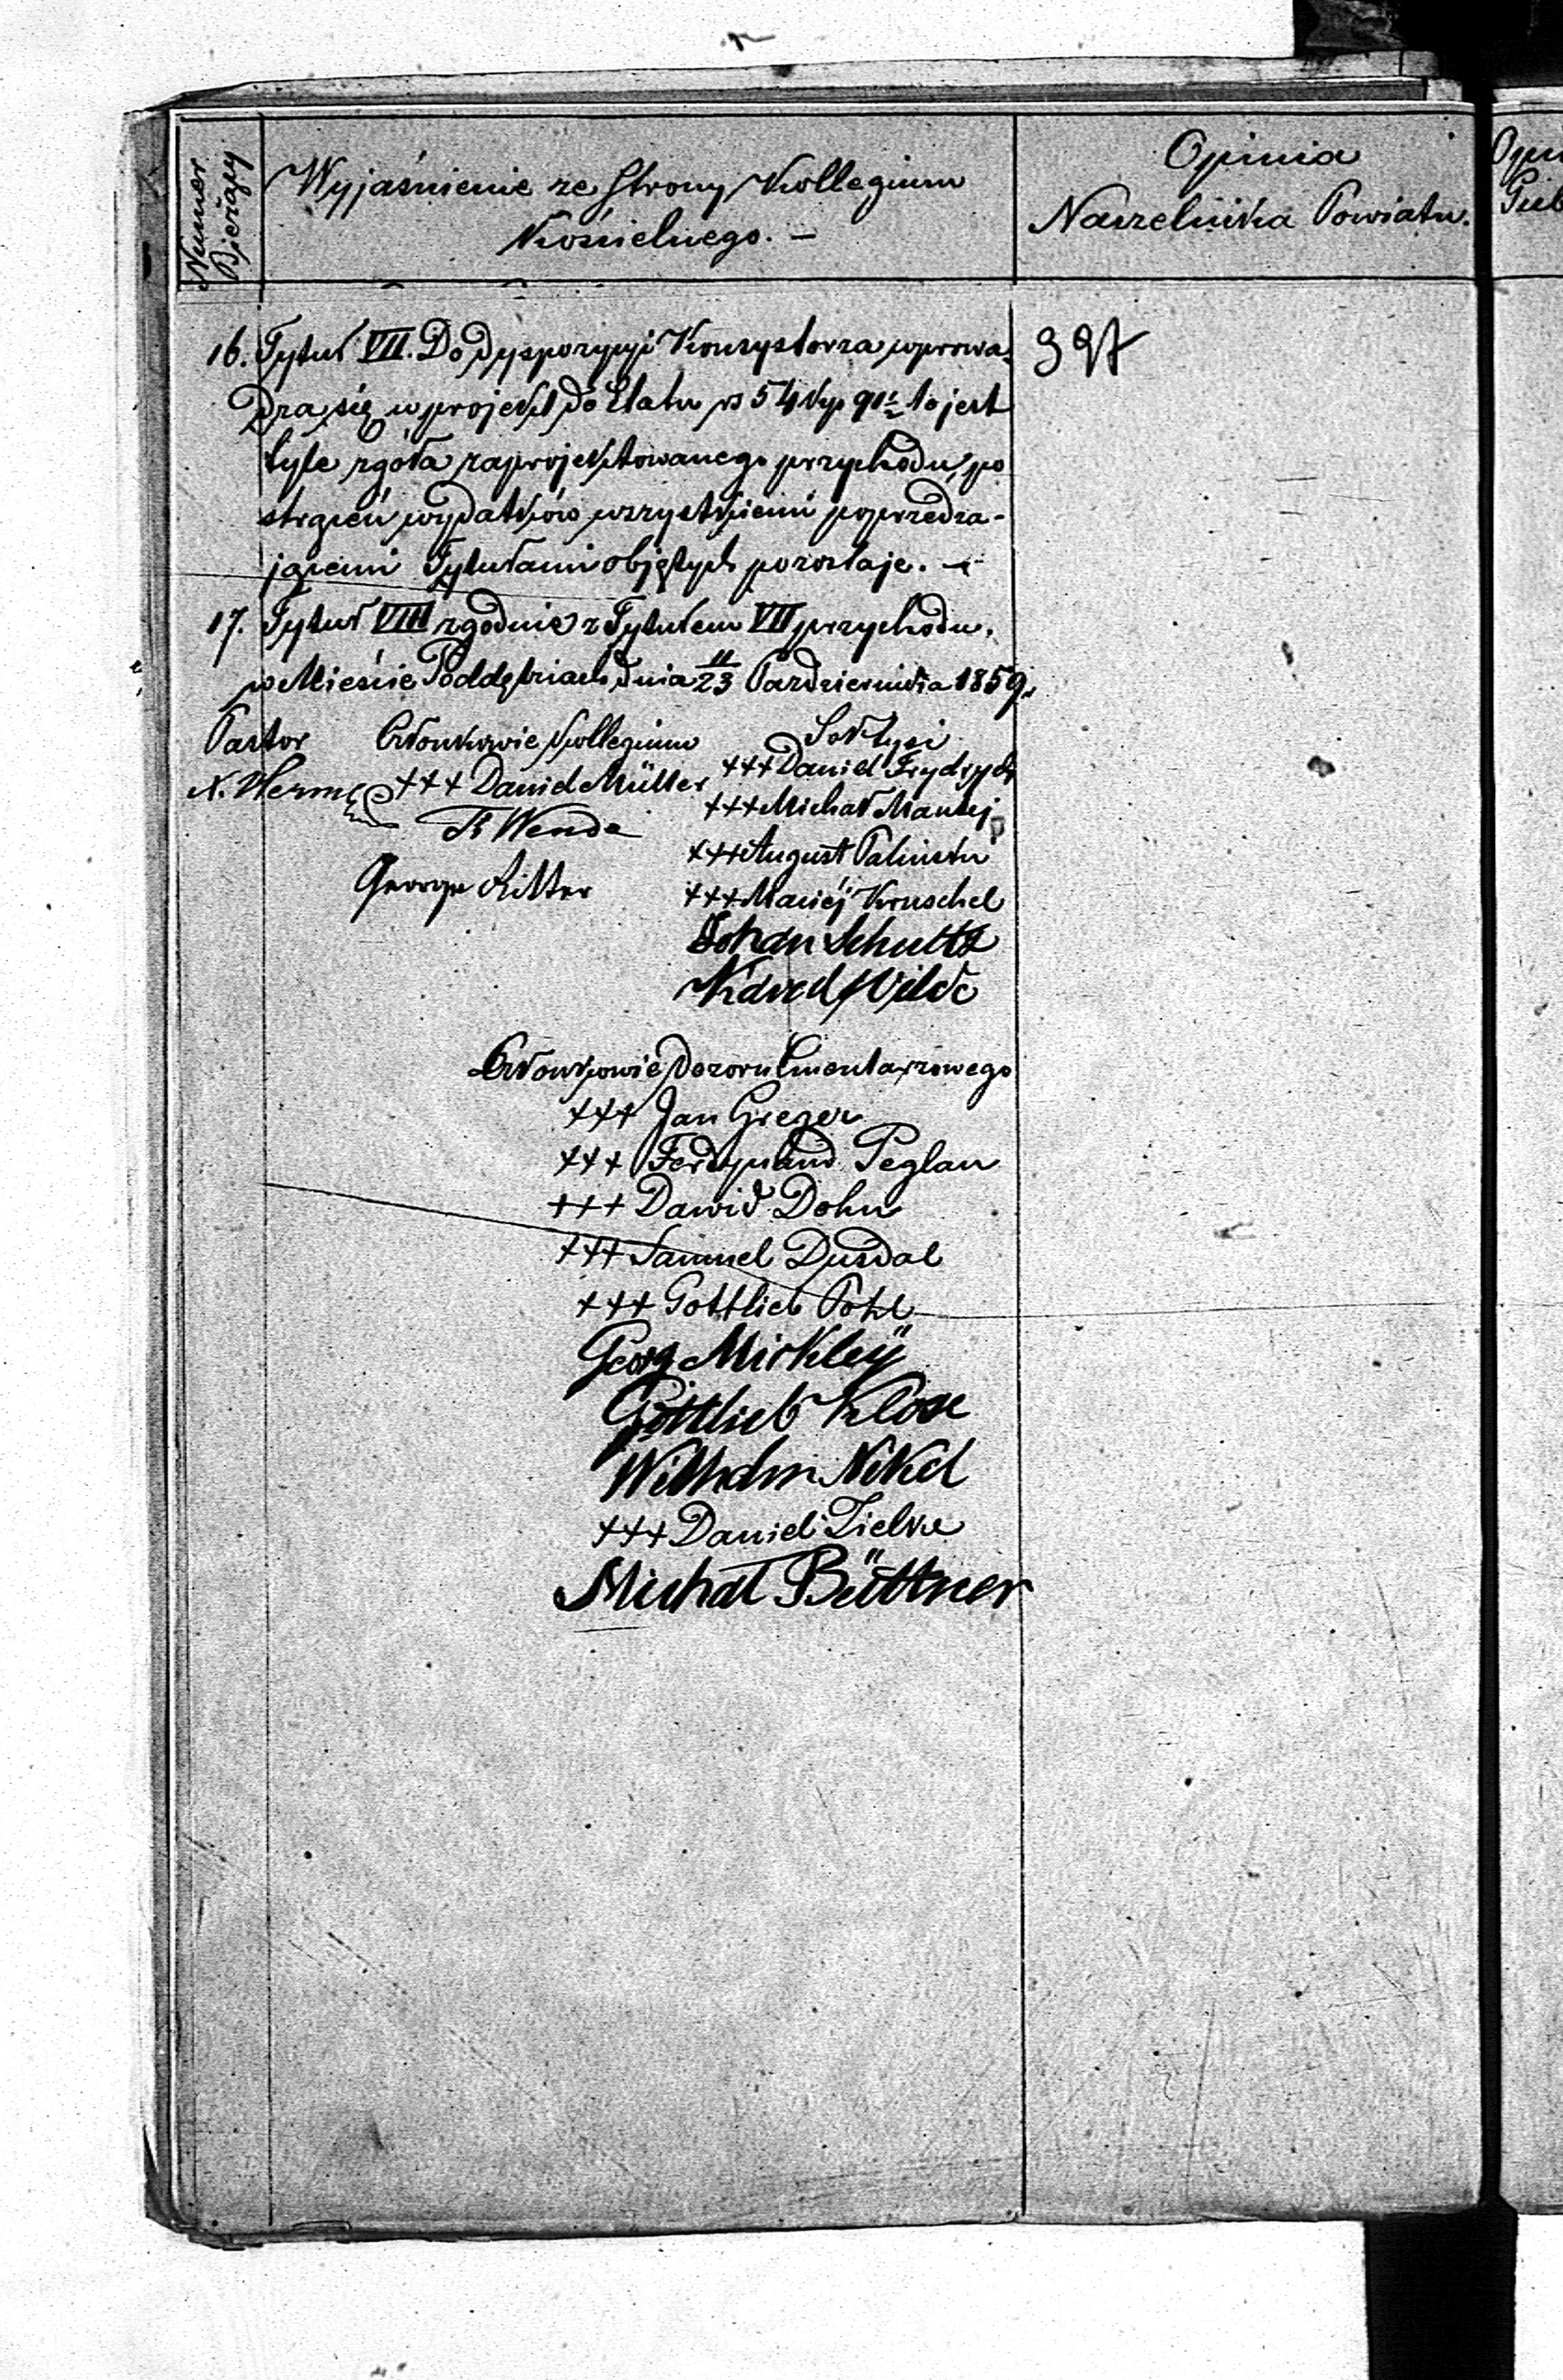 Numer Bieżący
Wyjaśnienie ze Strony Kollegium
Kościelnego. –
Opinia
Naczelnika Powiatu.
16. Tytuł VII. Do dyspozycyi Konsystorza wprowa-
dza się w projekt do Etatu rs 54 kop 91½ to jest
tyle z góła zaprojektowanego przychodu, po
strąceń wydatków wszystkiemi poprzedza-
jącemi Tytułami objętych pozostaje. –
397
17. Tytuł VIII zgodnie z Tytułem VII przychodu.
w Mieście Poddębicach, dnia 11/23 Października 1859.
Pastor Członkowie Kollegium Sołtysi
+++ Daniel Frydrych
+++ Daniel Müller
+++ Michał Mantej
Wende
+++ August
George Ritter
+++ Maciéj Kruschel
Johan Schultz
Wilde
Członkowie Dozoru Cmentarzowego
+++ Jan Greger
+++ Ferdynand Peglau
+++ Dawid Dohn
+++ Samuel Dusdal
+++ Gottlieb Pohl
Georg Mirkley
Gottlieb Klose
Wilhelm Nikel
+++ Daniel Zielke
Michał Büttner